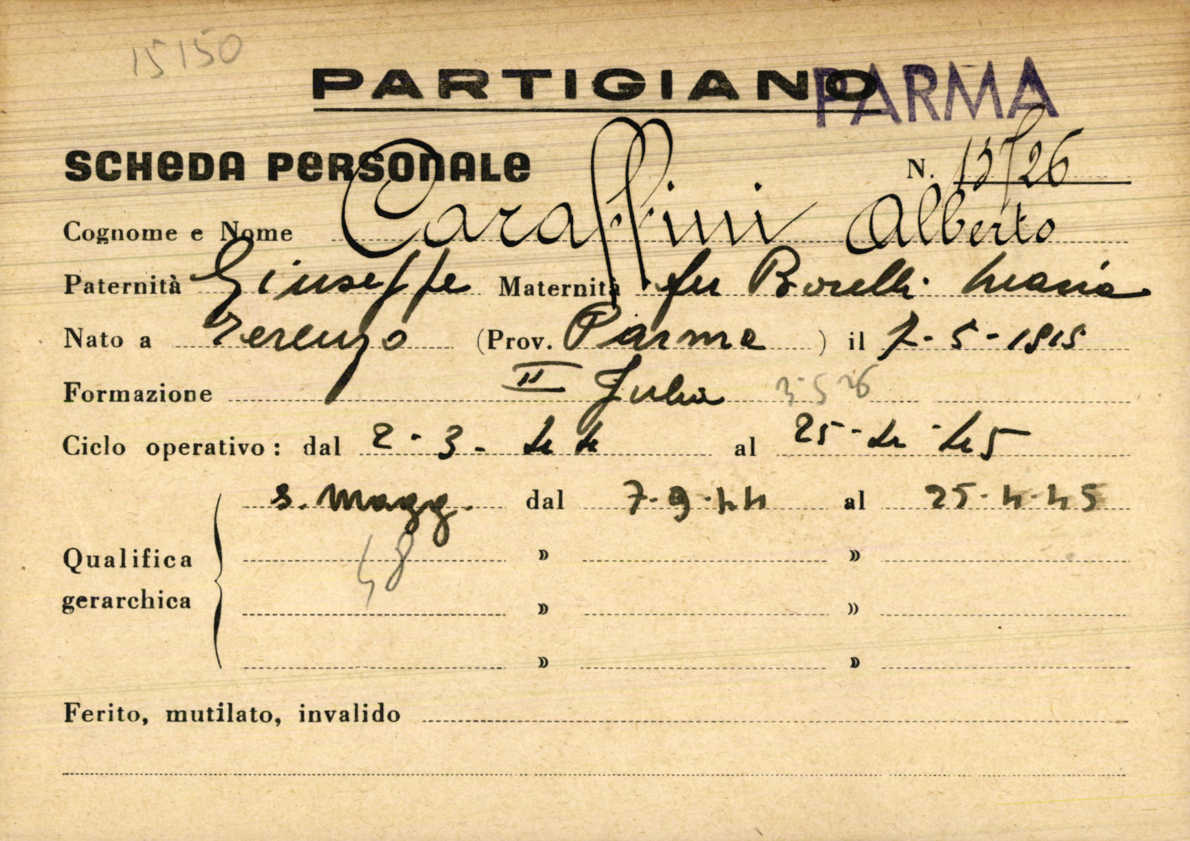 15150
PARTIGIANO PARMA
SCHEDA PERSONALE N. 13726
Cognome e Nome Caraffini Alberto
Paternità Giuseppe Maternità fu Borelli Maria
Nato a Terenzo (Prov. Parma) il 7-5-1915
Formazione II Julia 3526
Ciclo operativo: dal 2-3-44 al 25-4-45
s. magg. dal 7-9-44 al 25-4-45
48
Qualifica gerarchica » »
» »
» »
Ferito, mutilato, invalido